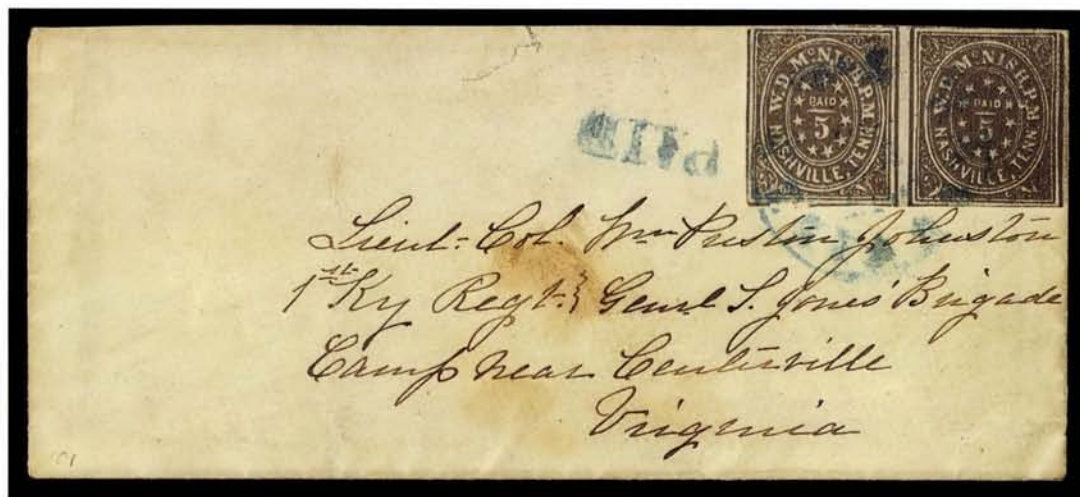 W.D. McNISH. P.M.
PAID
5
NASHVILLE, TENN.
W.D. McNISH. P.M.
PAID
5
NASHVILLE, TENN.
PAID
Lieut: Col. Wm Preston Johnston
1st Ky Regt: Genrl S. Jones' Brigade
Camp near Centerville
Virginia